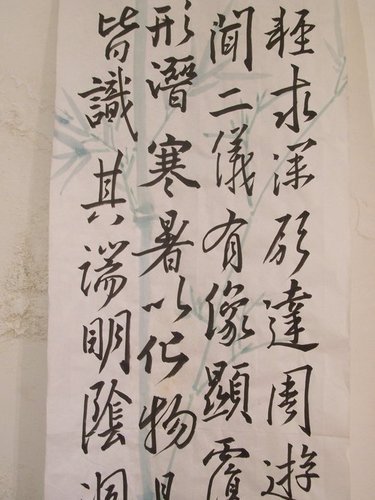 輕求深願達周遊
聞二儀有像顯覆
形潛寒暑以化物是
皆識其端明陰洞